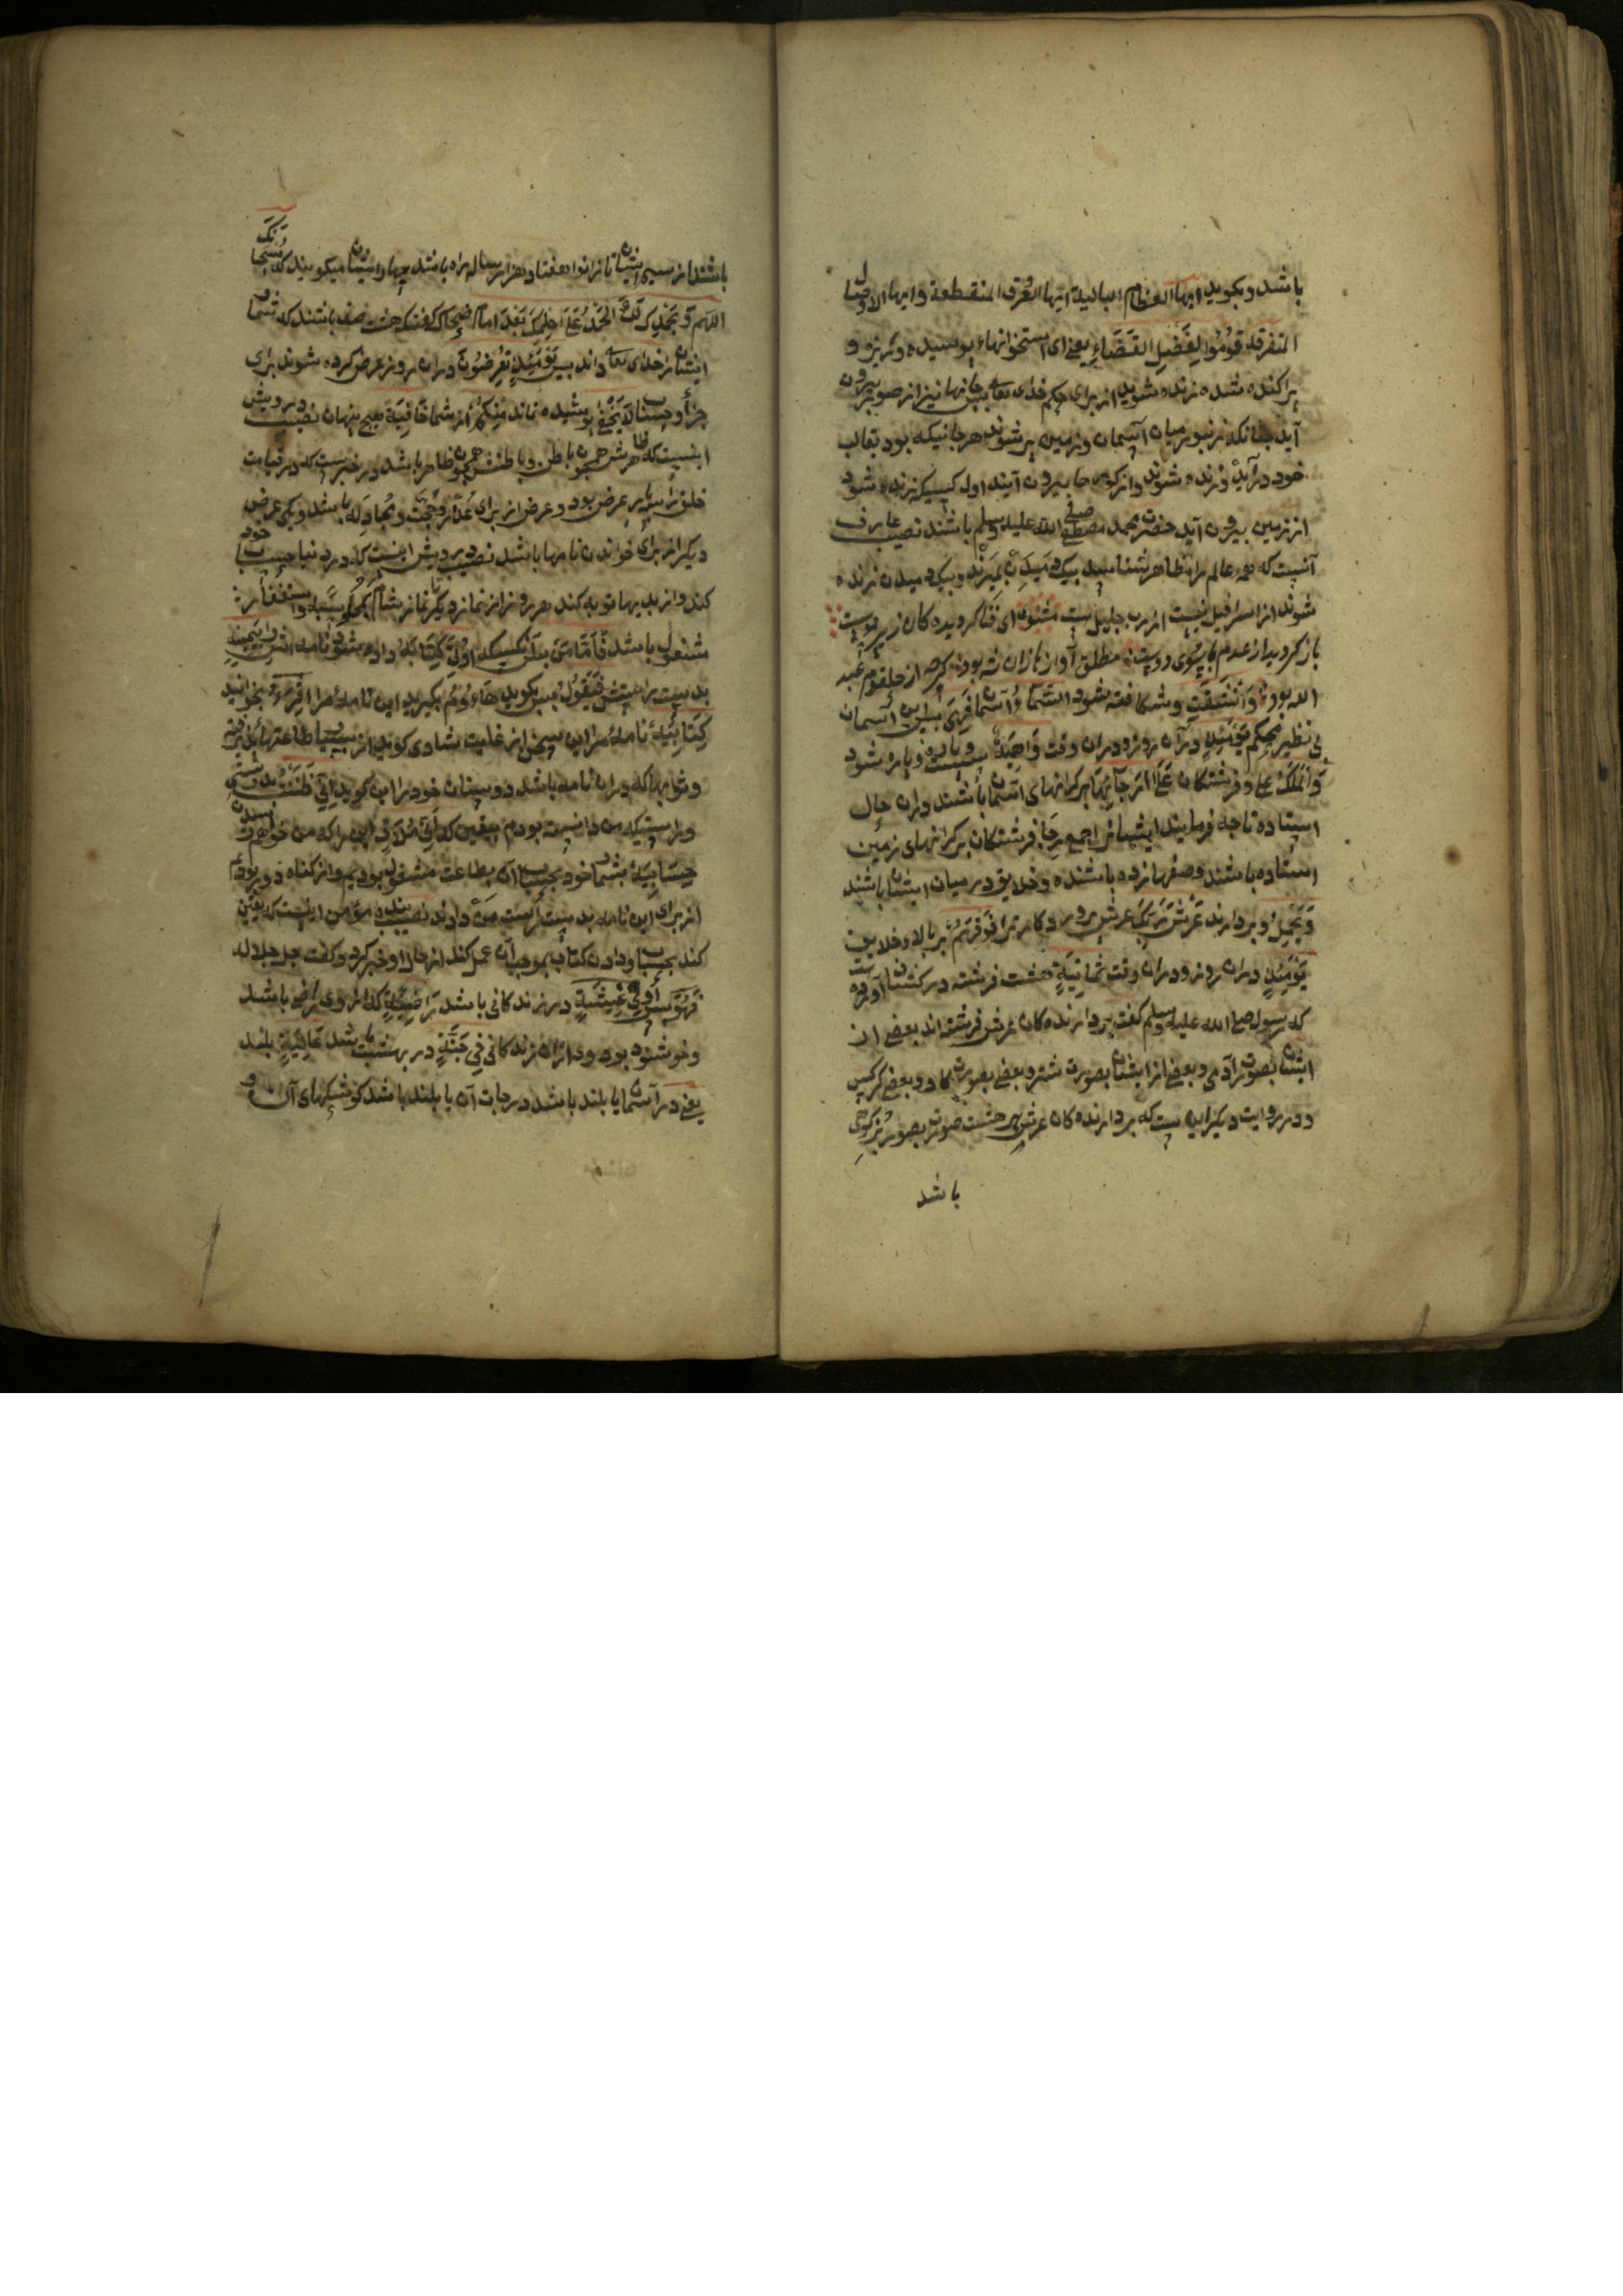 باشد و بگوید ایها العظام البالیة ایتها العرق المنقطعة و ایها الاوصال
المتفرقة قُومُوا لِفَصْلِ القَضَاءِ یعنی ای استخوانهاء پوسیده و ریزه و
پراکنده شده زنده شوید از برای حکم خدای تعالی پس جانها نیز از صور بیرون
آید چنانکه زنبور میان آسمان و زمین پر شوند هر جانیکه بود بقالب
خود در آید و زنده شوند و از کوی جا بیرون آیند اول کسیکه زنده شود
از زمین بیرون آید حضرت محمد مصطفی صلی الله علیه وسلم باشند نصیب عارف
آنست که همه عالم را مظاهر شناسد بیک دمیدن بمیرند و بیک دمیدن زنده
شوند از اسرافیل نیست از رب جلیل ست مثنوی ای فنا کردیده کان زیر پوست
باز کردید از عدم با سوی دوست مطلق آواز بازان شه بود کرچه از حلقوم عبد
الله بود وَانْشَقَّتِ و شکافته شود السَّمَاءُ آسمان فَهِیَ پس این آسمان
بی نظیر محکم یَوْمَئِذٍ در آن روز و دران وقت وَاهِیَةٌ سست و پاره پاره شود
وَالْمَلَكُ و فرشتکان عَلَی اَرْجَائِهَا بر کرانهای آسمان باشند دران حال
ایستاده تا چه فرمایند ایشانرا جمع رجا فرشتکان بر کرانهای زمین
ایستاده باشند و صفها زده باشنده و خلایق در میان ایشان باشند
وَیَحْمِلُ و بردارند عَرْشَ رَبِّكَ عرش پروردکار ترا فَوْقَهُمْ بر بالاء خلایق
یَوْمَئِذٍ دران روز و دران وقت ثَمَانِیَةٌ هشت فرشته در کشاف آورده است
که رسول صلی الله علیه وسلم کفت بردارنده کان عرش فرشته اند بعضی از
ایشان بصورت آدمی و بعضی از ایشان بصورت شیر و بعضی بصورت کاو و بعضی کرکس
و در روایت دیکر این ست که بردارنده کان عرش هر هشت بصورت بز کوهی
باشد
باشند از سم ایشان تا زانوا هفتاد هزار ساله راه باشد چهار ازیشان میکویند که سُبْحَانَكَ
اللهم و بحمدک لَكَ الحَمْدُ عَلَی حِلْمِكَ بَعْدَ امام ضحاک کفت که هشت صف باشند که شمار
ایشان را خدای تعالی داند پس یَوْمَئِذٍ تُعْرَضُونَ دران روز عرض کرده شوند برای
جزا و حساب لَا تَخْفَی پوشیده نماند مِنْكُمْ از شما خَافِیَةٌ هیچ پنهان نصیب درویش
اینست که ظاهرش همچون باطن و باطنش همچون ظاهر باشد در خبرست که در قیامت
خلق را سه بار عرض بود دو عرض از برای عذر و حجت و مجادله باشد و یکی عرض
دیکر از برای خواندن نامها باشد نصیب درویش اینست که در دنیا حساب خود
کند و از بدیها توبه کند هر روز از نماز دیکر تا نماز شام بمحاسبه و استغفار
مشغول باشد فَاَمَّا مَنْ پس آنکسیکه اُوتِیَ كِتَابَهُ داده شود نامه اش بِیَمِینِهِ
بدست راستش فَیَقُولُ پس بکوید هَاؤُمُ بکیرید این نامه مرا اقْرَءُوا بخوانید
كِتَابِیَهْ نامه مرا این سخن از غایت شادی کوید از بسیاری طاعتها
و ثوابها که دران نامه باشد دوستان خود را این کوید اِنِّی ظَنَنْتُ بدرستی
و راستیکه من دانسته بودم بیقین که اَنِّی مُلَاقٍ این را که من خواهم رسیدن
حِسَابِیَهْ بشمار خود بحساب آن بطاعت مشغول بودیم و از کناه دور بودم
از برای این نامه بدست راست من دادند نصیب بنده مؤمن اینست که یقین
کند بحساب و دادن کتاب بموجب آن عمل کند از حال او خبر کرد و کفت جل جلاله
فَهُوَ پس او فِی عِیشَةٍ در زندکانی باشد رَاضِیَةٍ که از وی راضی باشد
و خوشنود بود وی ازان زندکانی فِی جَنَّةٍ در بهشت باشد عَالِیَةٍ بلند
یعنی در آسمان یا بلند باشد درجات آن یا بلند باشد کوشکهای آن و